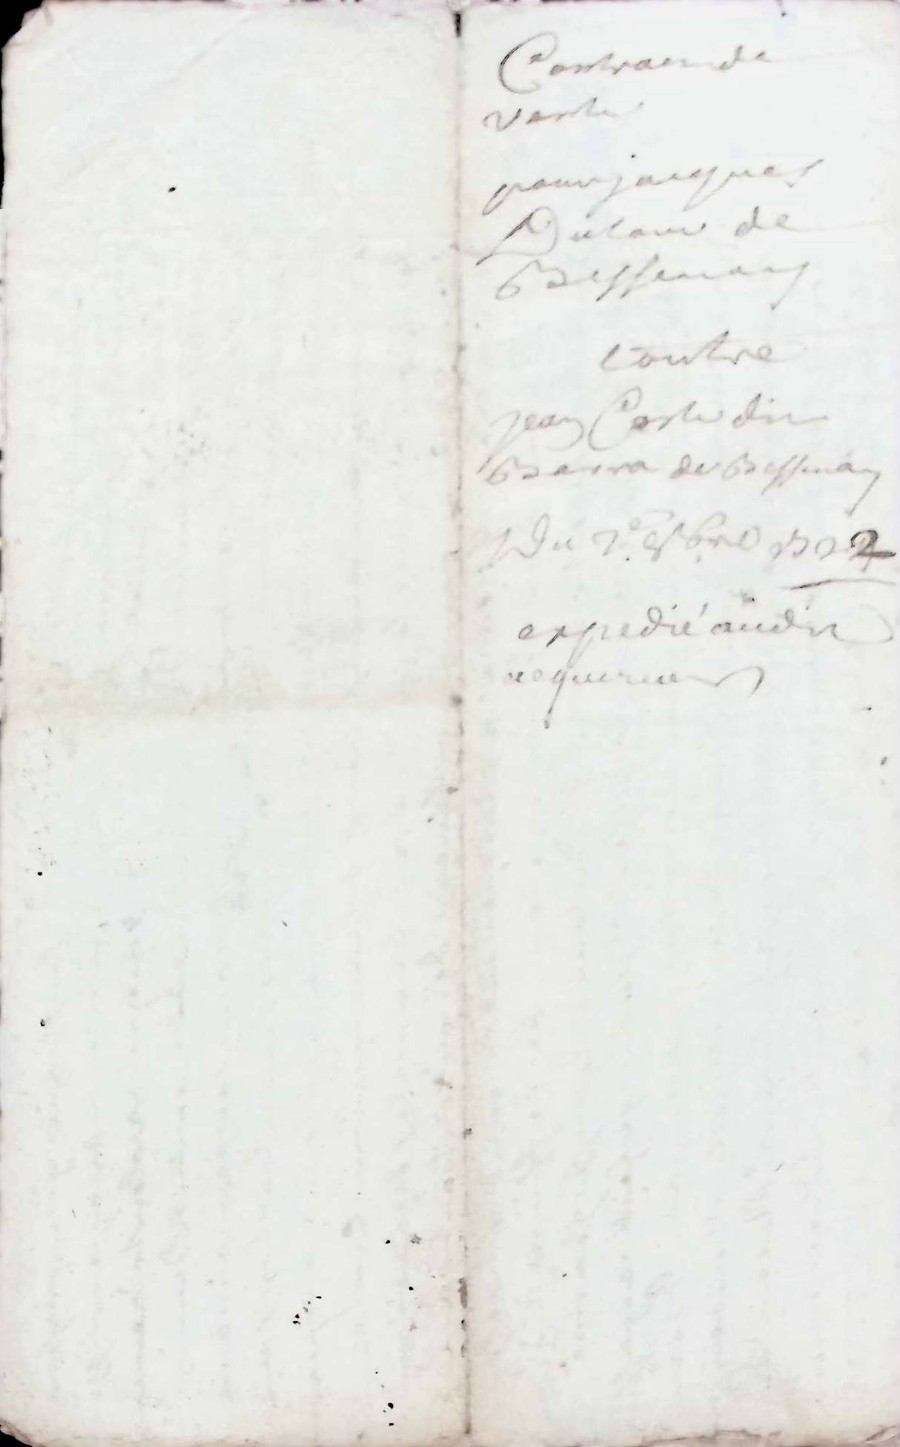 Contract de
vente
pour jacques
Dutour de
Bessenay
Contre
jean Coste dit
Barra de Bessenay
Du 7e 8bre 1722
expedié audit
acquereur